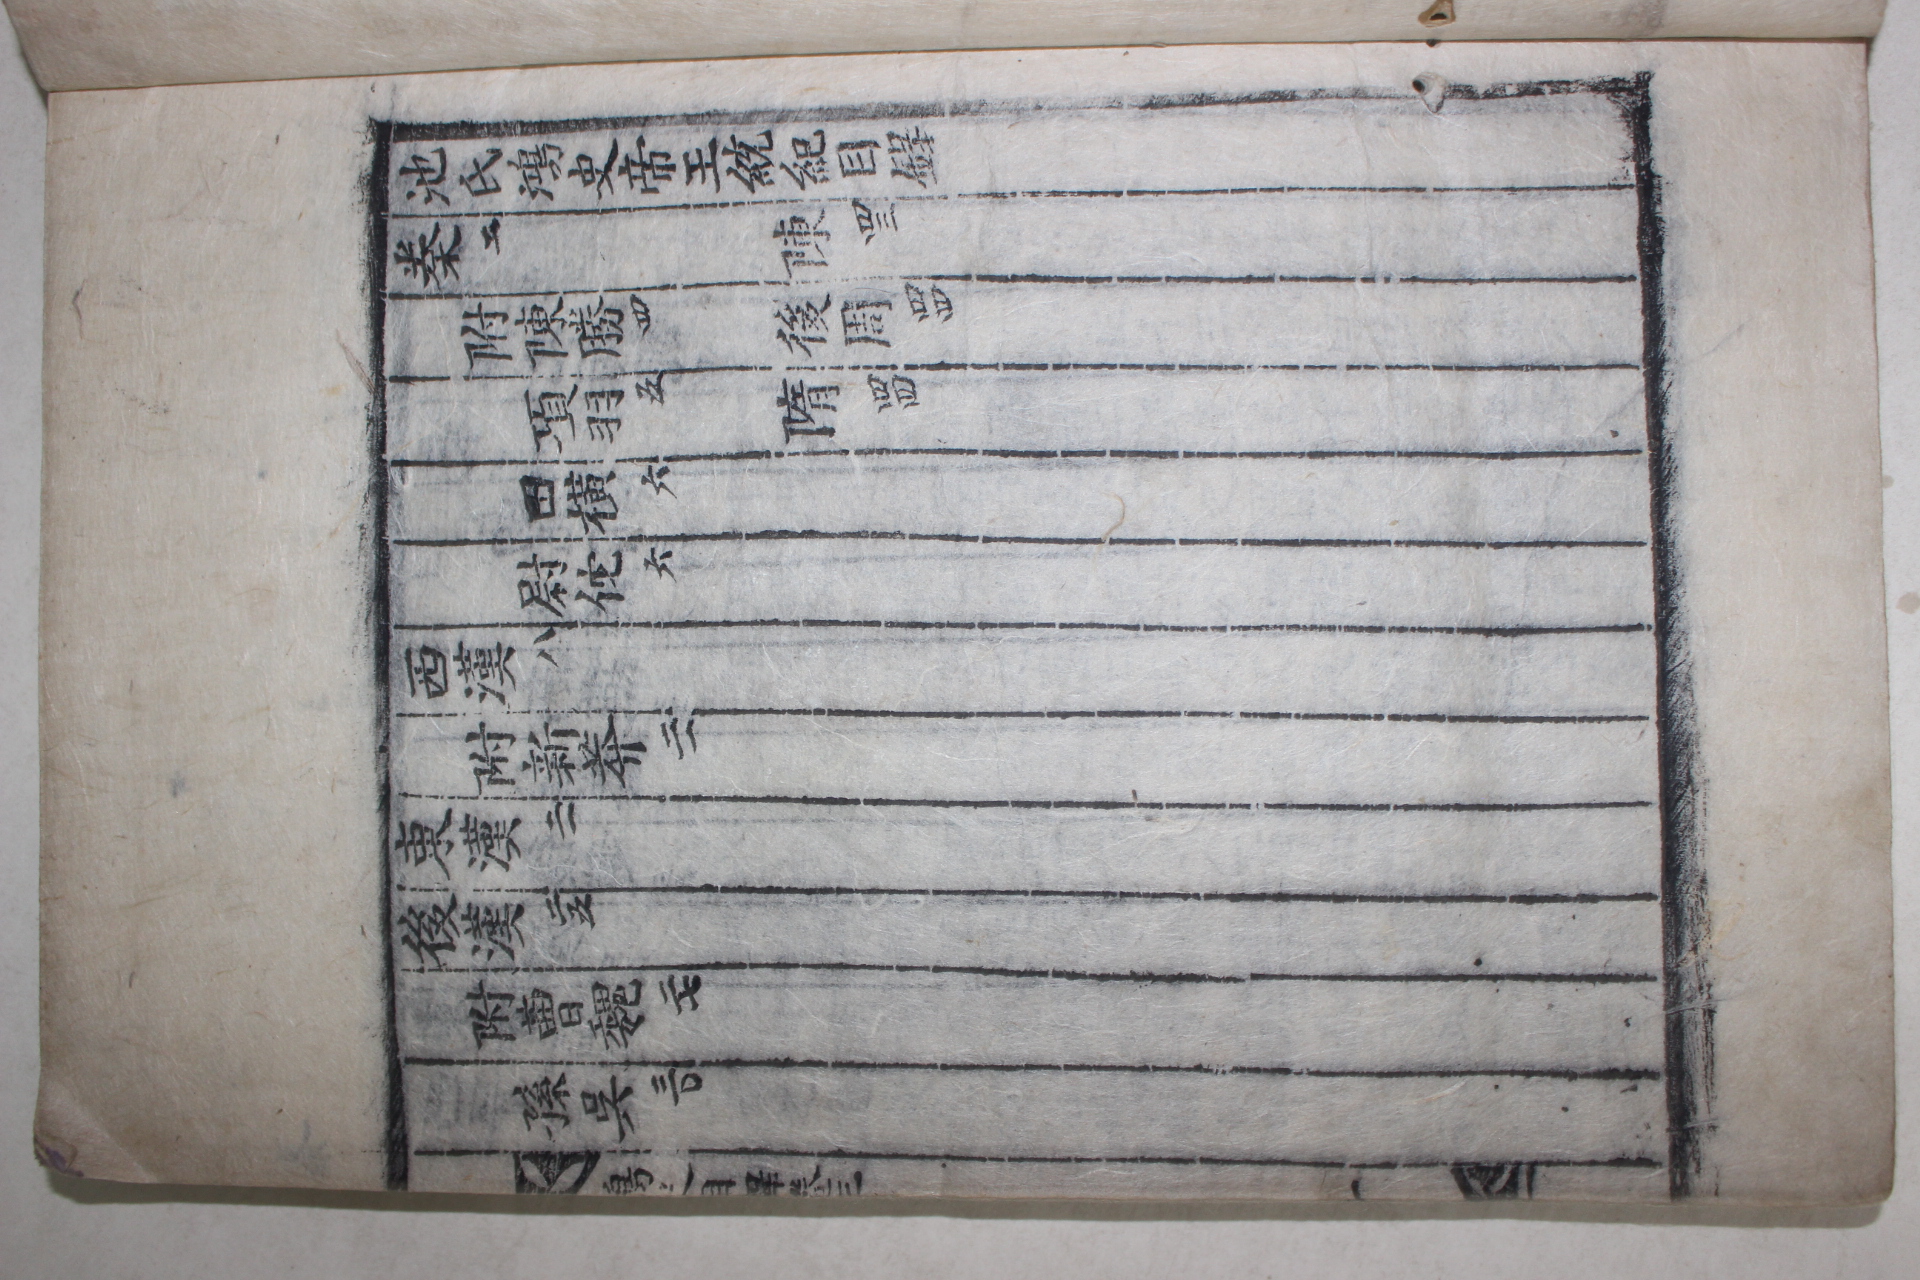 池氏鴻史帝王統紀目錄
秦 二 陳 四三
附陳勝 四 後周 四四
項羽 五 隋 四四
田橫 六
尉佗 六
西漢 八
附新莽
東漢
後漢 二五
附曹魏 二七
孫吳